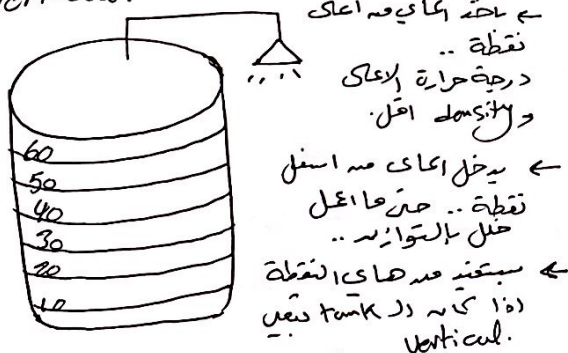 ← ناخذ المي من اعلى
نقطة ..
درجة حرارة الاعلى
و density اقل.
← يدخل المي من اسفل
نقطة .. حتى ما اعمل
خلل بالتوازن ..
← بستفيد من هاي النقطة
اذا كان ال tank تبعي
vertical.
60
50
40
30
20
10